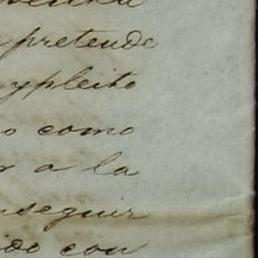 pretende
y pleito
o como
r a la
nseguir
ido con